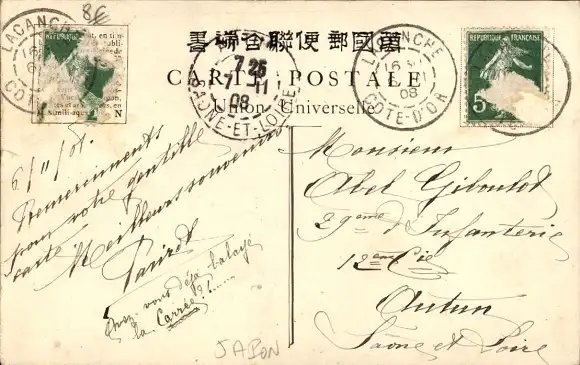 86
書端合聯便郵國萬
CARTE POSTALE
Union Universelle
LACANCHE
16
CÔTE-D'OR
RÉPUBLIQUE
N
7 25
7-11
08
SAÔNE-ET-LOIRE
LACANCHE
16
08
CÔTE-D'OR
RÉPUBLIQUE FRANÇAISE
5
6/11/08.
Remerciements
pour votre gentille
carte. Meilleurs souvenirs
vous déjà balayé
la Carrée ?!......
Monsieur
Abel Giboulot
29ème d'Infanterie
12ème Cie
Autun
Saône et Loire
JAPON